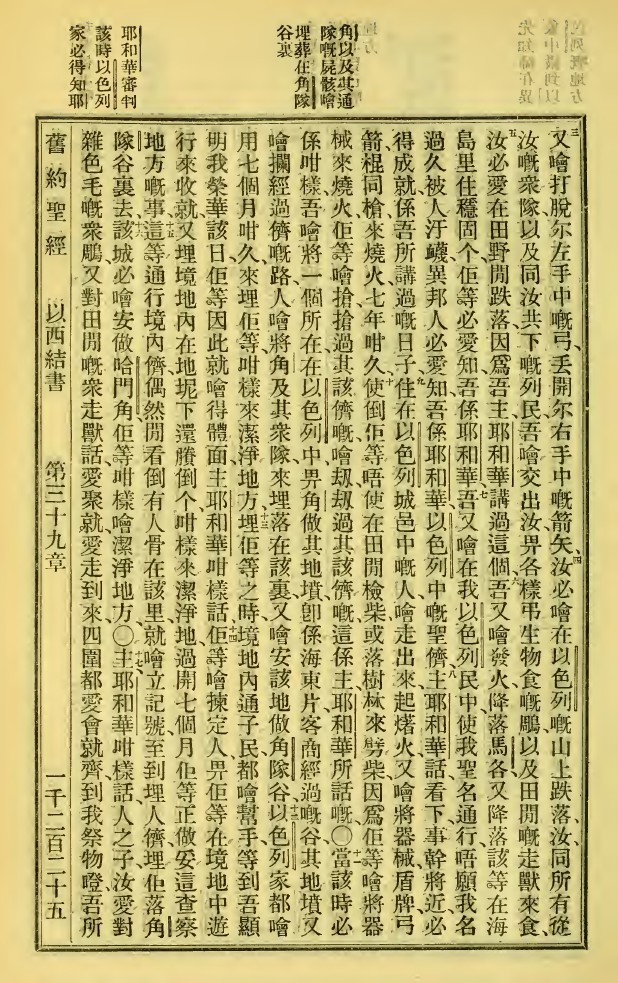 角以及其通
隊嘅屍骸噲
埋葬在角隊
谷裏
耶和華審判
該時以色列
家必得知耶
三
又噲打脫尔左手中嘅弓、丟開尔右手中嘅箭矢、四汝必噲在以色列嘅山上跌落、汝同所有從
汝嘅衆隊以及同汝共下嘅列民、吾噲交出汝畀各樣弔生物食嘅鵰、以及田間嘅走獸來食、
五汝必愛在田野間跌落、因爲吾主耶和華講過這個、六吾又噲發火降落馬各、又降落該等在海
島里住穩固个、佢等必愛知吾係耶和華、七吾又噲在我以色列民中使我聖名通行、唔願我名
過久被人汙衊、異邦人必愛知吾係耶和華、以色列中嘅聖儕、八主耶和華話、看下事幹將近必
得成就、係吾所講過嘅日子、九住在以色列城邑中嘅人、噲走出來起㷛火、又噲將器械盾牌弓
箭棍同槍來燒火、七年咁久、十使倒佢等唔使在田間檢柴、或落樹林來劈柴、因爲佢等噲將器
械來燒火、佢等噲搶搶過其該儕嘅、噲刧刧過其該儕嘅、這係主耶和華所話嘅、〇十一當該時必
係咁樣、吾噲將一個所在在以色列中畀角做其地墳、卽係海東片客商經過嘅谷、其地墳又
噲攔經過儕嘅路、人噲將角及其衆隊來埋落在該裏、又噲安該地做角隊谷、十二以色列家都噲
用七個月咁久來埋佢等、咁樣來潔淨地方、十三埋佢等之時、境地內通子民都噲幫手、等到吾顯
明我榮華該日、佢等因此就噲得體面、主耶和華咁樣話、十四佢等噲揀定人、畀佢等在境地中遊
行來收、就又埋境地內在地坭下還賸倒个、咁樣來潔淨地、過開七個月、佢等正做妥這查察
地方嘅事、十五這等通行境內儕、偶然間看倒有人骨在該里、就噲立記號、至到埋人儕埋佢落角
隊谷裏去、十六該城必噲安做哈門角、佢等咁樣噲潔淨地方、〇十七主耶和華咁樣話、人之子、汝愛對
雜色毛嘅衆鵰、又對田間嘅衆走獸話、愛聚就愛走到來、四圍都愛會就齊到我祭物嶝、吾所
舊約聖經　以西結書　第三十九章　一千二百二十五